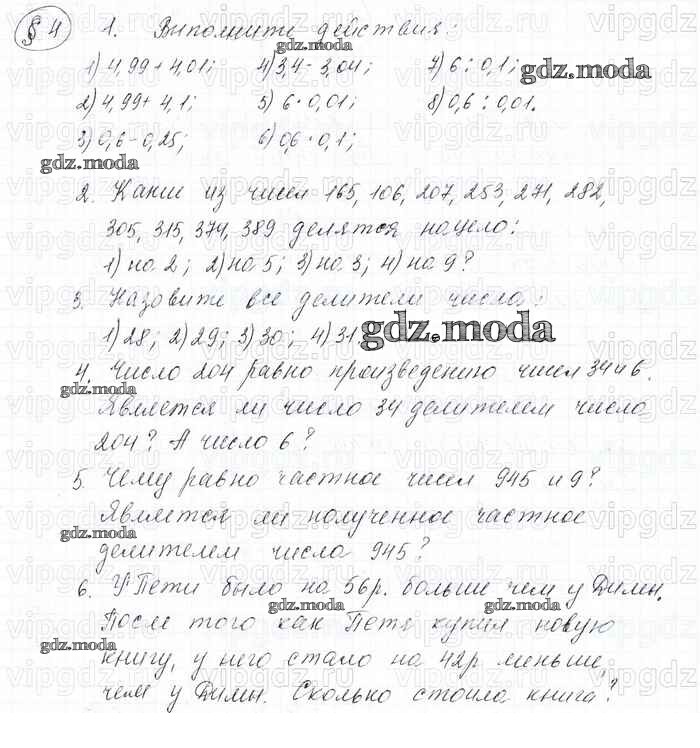 § 4 1. Выполните действия:
1) 4,99 + 4,01; 4) 3,4 - 3,04; 7) 6 : 0,1;
2) 4,99 + 4,1; 5) 6 · 0,01; 8) 0,6 : 0,01.
3) 0,6 - 0,25; 6) 0,6 · 0,1;
2. Какие из чисел 165, 106, 207, 253, 271, 282,
305, 315, 374, 389 делятся нацело:
1) на 2; 2) на 5; 3) на 3; 4) на 9?
3. Назовите все делители числа:
1) 28; 2) 29; 3) 30; 4) 31
4. Число 204 равно произведению чисел 34 и 6.
Является ли число 34 делителем числа
204? А число 6?
5. Чему равно частное чисел 945 и 9?
Является ли полученное частное
делителем числа 945?
6. У Пети было на 56 р. больше чем у Димы.
После того как Петя купил новую
книгу, у него стало на 42 р меньше,
чем у Димы. Сколько стоила книга?
gdz.moda
vipgdz.ru